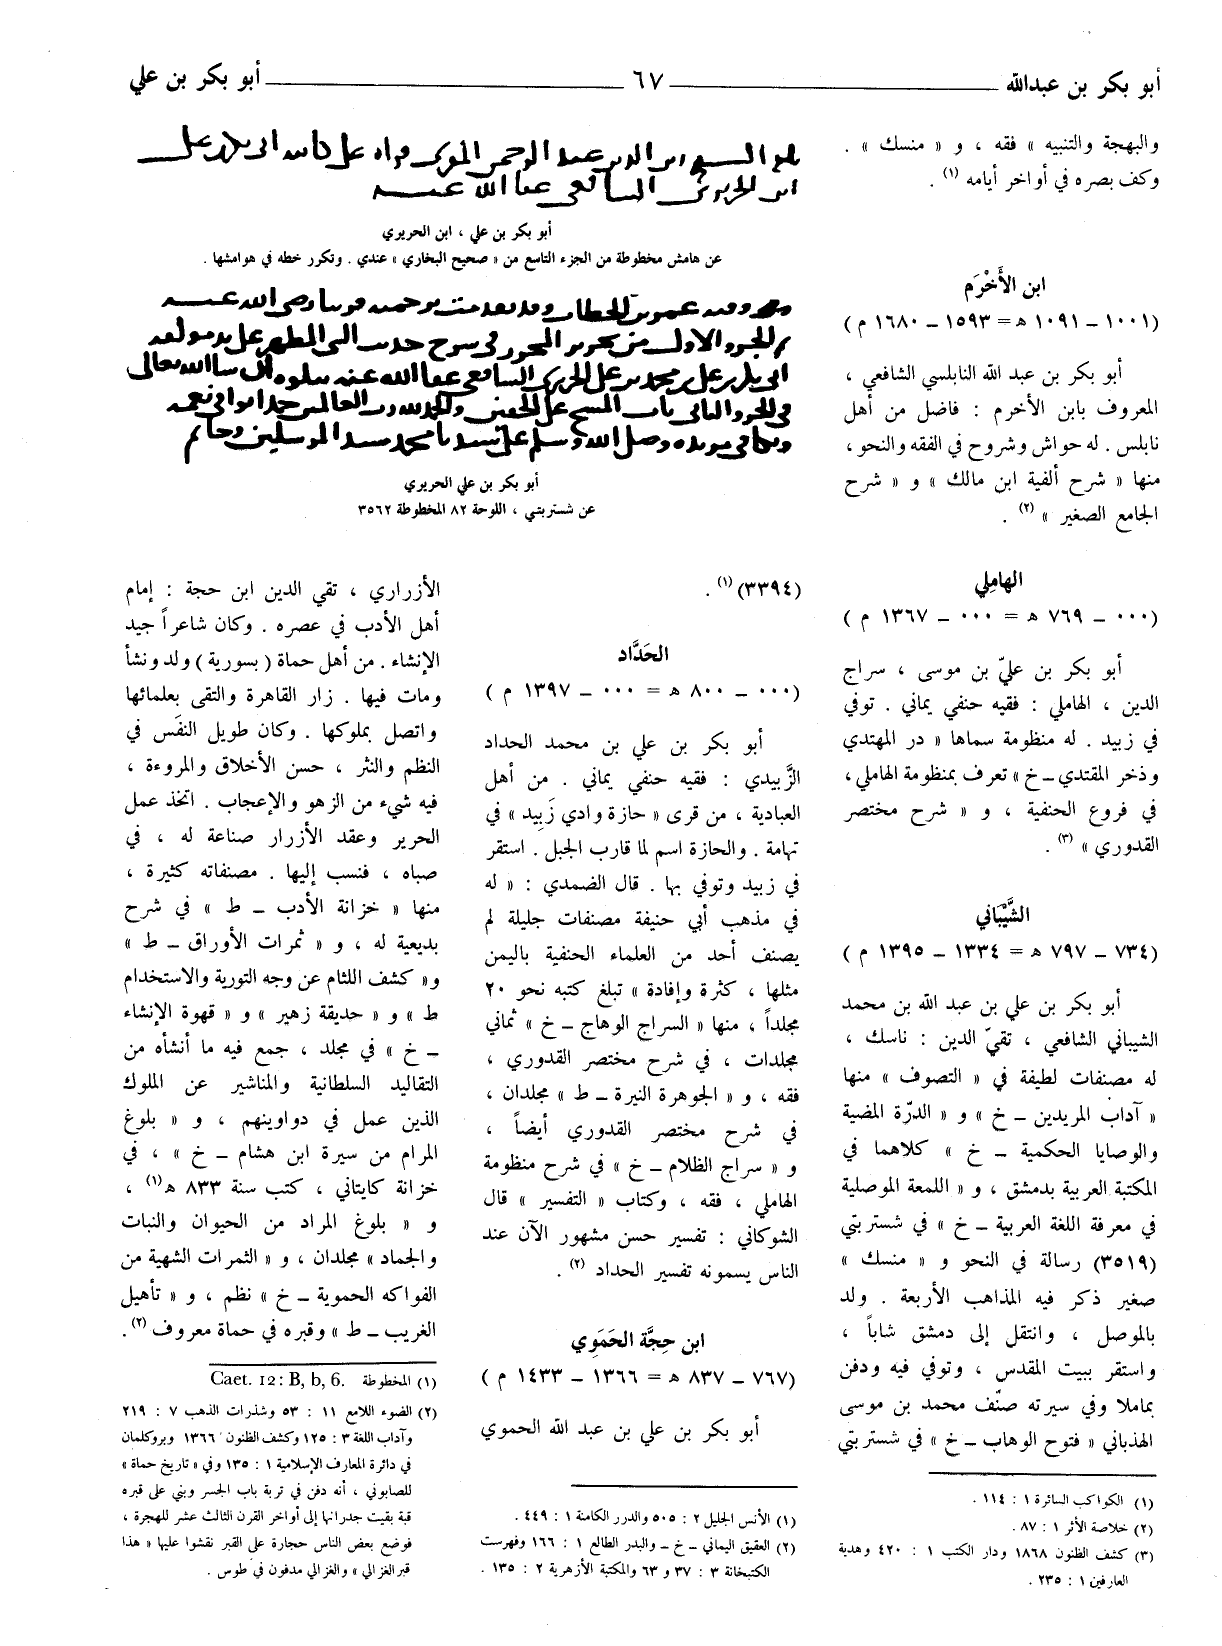 أبو بكر بن عبدالله ٦٧ أبو بكر بن علي
والبهجة والتنبيه » فقه ، و « منسك » .
وكف بصره في أواخر أيامه (١) .
ابن الأَخْرَم
(١٠٠١ – ١٠٩١ ه = ١٥٩٣ – ١٦٨٠ م)
أبو بكر بن عبد الله النابلسي الشافعي ،
المعروف بابن الأخرم : فاضل من أهل
نابلس . له حواش وشروح في الفقه والنحو ،
منها « شرح ألفية ابن مالك » و « شرح
الجامع الصغير » (٢) .
الهامِلِي
(٠٠٠ – ٧٦٩ ه = ٠٠٠ – ١٣٦٧ م)
أبو بكر بن عليّ بن موسى ، سراج
الدين ، الهاملي : فقيه حنفي يماني . توفي
في زبيد . له منظومة سماها « در المهتدي
وذخر المقتدي – خ » تعرف بمنظومة الهاملي ،
في فروع الحنفية ، و « شرح مختصر
القدوري » (٣) .
الشَّيْبَاني
(٧٣٤ – ٧٩٧ ه = ١٣٣٤ – ١٣٩٥ م)
أبو بكر بن علي بن عبد الله بن محمد
الشيباني الشافعي ، تقيّ الدين : ناسك ،
له مصنفات لطيفة في « التصوف » منها
« آداب المريدين – خ » و « الدرّة المضية
والوصايا الحكمية – خ » كلاهما في
المكتبة العربية بدمشق ، و « اللمعة الموصلية
في معرفة اللغة العربية – خ » في شستربتي
(٣٥١٩) رسالة في النحو و « منسك »
صغير ذكر فيه المذاهب الأربعة . ولد
بالموصل ، وانتقل إلى دمشق شاباً ،
واستقر ببيت المقدس ، وتوفي فيه ودفن
بماملا وفي سيرته صنّف محمد بن موسى
الهذباني « فتوح الوهاب – خ » في شستربتي
(١) الكواكب السائرة ١ : ١١٤ .
(٢) خلاصة الأثر ١ : ٨٧ .
(٣) كشف الظنون ١٨٦٨ ودار الكتب ١ : ٤٢٠ وهدية
العارفين ١ : ٢٣٥ .
أبو بكر بن علي ، ابن الحريري
عن هامش مخطوطة من الجزء التاسع من « صحيح البخاري » عندي . وتكرر خطه في هوامشها .
أبو بكر بن علي الحريري
عن شستربتي ، اللوحة ٨٢ المخطوطة ٣٥٦٢
(٣٣٩٤) (١) .
الحَدَّاد
(٠٠٠ – ٨٠٠ ه = ٠٠٠ – ١٣٩٧ م)
أبو بكر بن علي بن محمد الحداد
الزَّبيدي : فقيه حنفي يماني . من أهل
العبادية ، من قرى « حازة وادي زَبِيد » في
تهامة . والحازة اسم لما قارب الجبل . استقر
في زبيد وتوفي بها . قال الضمدي : « له
في مذهب أبي حنيفة مصنفات جليلة لم
يصنف أحد من العلماء الحنفية باليمن
مثلها ، كثرة وإفادة » تبلغ كتبه نحو ٢٠
مجلداً ، منها « السراج الوهاج – خ » ثماني
مجلدات ، في شرح مختصر القدوري ،
فقه ، و « الجوهرة النيرة – ط » مجلدان ،
في شرح مختصر القدوري أيضاً ،
و « سراج الظلام – خ » في شرح منظومة
الهاملي ، فقه ، وكتاب « التفسير » قال
الشوكاني : تفسير حسن مشهور الآن عند
الناس يسمونه تفسير الحداد (٢) .
ابن حِجَّة الحَمَوي
(٧٦٧ – ٨٣٧ ه = ١٣٦٦ – ١٤٣٣ م)
أبو بكر بن علي بن عبد الله الحموي
(١) الأنس الجليل ٢ : ٥٠٥ والدرر الكامنة ١ : ٤٤٩ .
(٢) العقيق اليماني – خ – والبدر الطالع ١ : ١٦٦ وفهرست
الكتبخانة ٣ : ٣٧ و ٦٣ والمكتبة الأزهرية ٢ : ١٣٥ .
الأزراري ، تقي الدين ابن حجة : إمام
أهل الأدب في عصره . وكان شاعراً جيد
الإنشاء . من أهل حماة (بسورية) ولد ونشأ
ومات فيها . زار القاهرة والتقى بعلمائها
واتصل بملوكها . وكان طويل النفَس في
النظم والنثر ، حسن الأخلاق والمروءة ،
فيه شيء من الزهو والإعجاب . اتخذ عمل
الحرير وعقد الأزرار صناعة له ، في
صباه ، فنسب إليها . مصنفاته كثيرة ،
منها « خزانة الأدب – ط » في شرح
بديعية له ، و « ثمرات الأوراق – ط »
و« كشف اللثام عن وجه التورية والاستخدام
ط » و « حديقة زهير » و « قهوة الإنشاء
– خ » في مجلد ، جمع فيه ما أنشأه من
التقاليد السلطانية والمناشير عن الملوك
الذين عمل في دواوينهم ، و « بلوغ
المرام من سيرة ابن هشام – خ » ، في
خزانة كايتاني ، كتب سنة ٨٣٣ ه (١) ،
و « بلوغ المراد من الحيوان والنبات
والجماد » مجلدان ، و « الثمرات الشهية من
الفواكه الحموية – خ » نظم ، و « تأهيل
الغريب – ط » وقبره في حماة معروف (٢) .
(١) المخطوطة Caet. 12: B, b, 6.
(٢) الضوء اللامع ١١ : ٥٣ وشذرات الذهب ٧ : ٢١٩
وآداب اللغة ٣ : ١٢٥ وكشف الظنون ١٣٦٦ وبروكلمان
في دائرة المعارف الإسلامية ١ : ١٣٥ وفي « تاريخ حماة »
للصابوني ، أنه دفن في تربة باب الجسر وبني على قبره
قبة بقيت جدرانها إلى أواخر القرن الثالث عشر للهجرة ،
فوضع بعض الناس حجارة على القبر نقشوا عليها « هذا
قبر الغزالي » والغزالي مدفون في طوس .